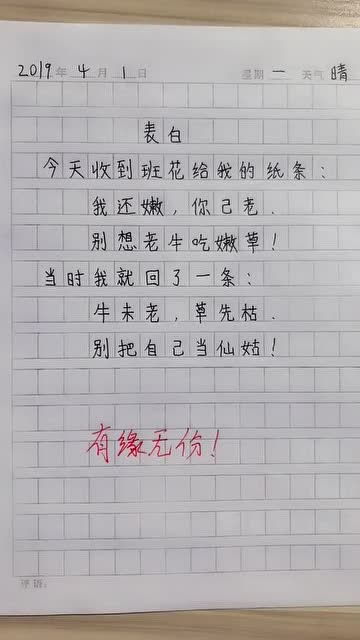 2019年4月1日 星期一 天气晴
表白
今天收到班花给我的纸条：
我还嫩，你己老．
别想老牛吃嫩草！
当时我就回了一条：
牛未老，草先枯．
别把自己当仙姑！
有缘无份！
评语：